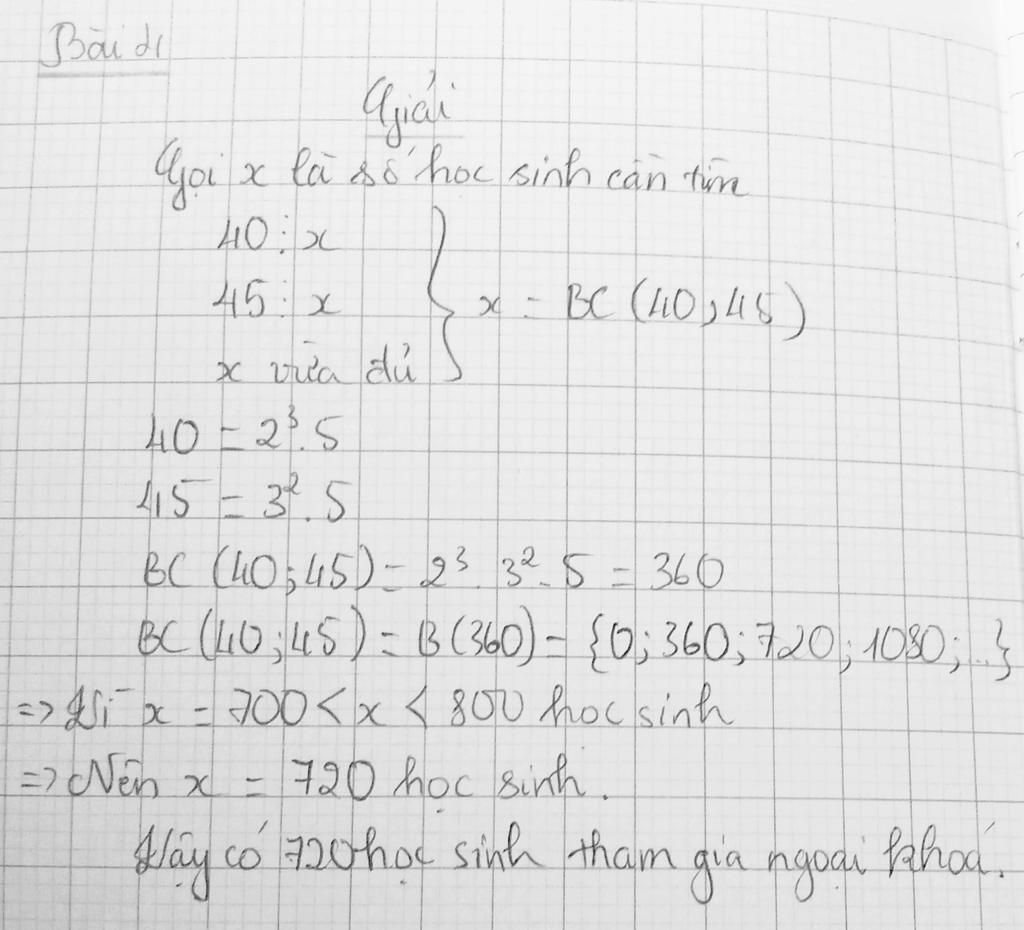 Bài 21
Giải
Gọi x là số học sinh cần tìm
40 ⋮ x
45 ⋮ x } x = BC (40; 45)
x vừa đủ
40 = 2³. 5
45 = 3². 5
BC (40; 45) = 2³. 3². 5 = 360
BC (40; 45) = B(360) = {0; 360; 720; 1080; ..}
=> Vì x = 700 < x < 800 học sinh
=> Nên x = 720 học sinh.
Vậy có 720 học sinh tham gia ngoại khoá.